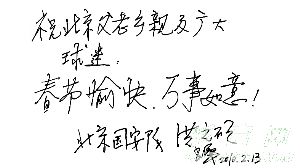 祝北京父老乡亲及广大
球迷.
春节愉快.万事如意!
北京国安队 洪元硕
2010.2.13